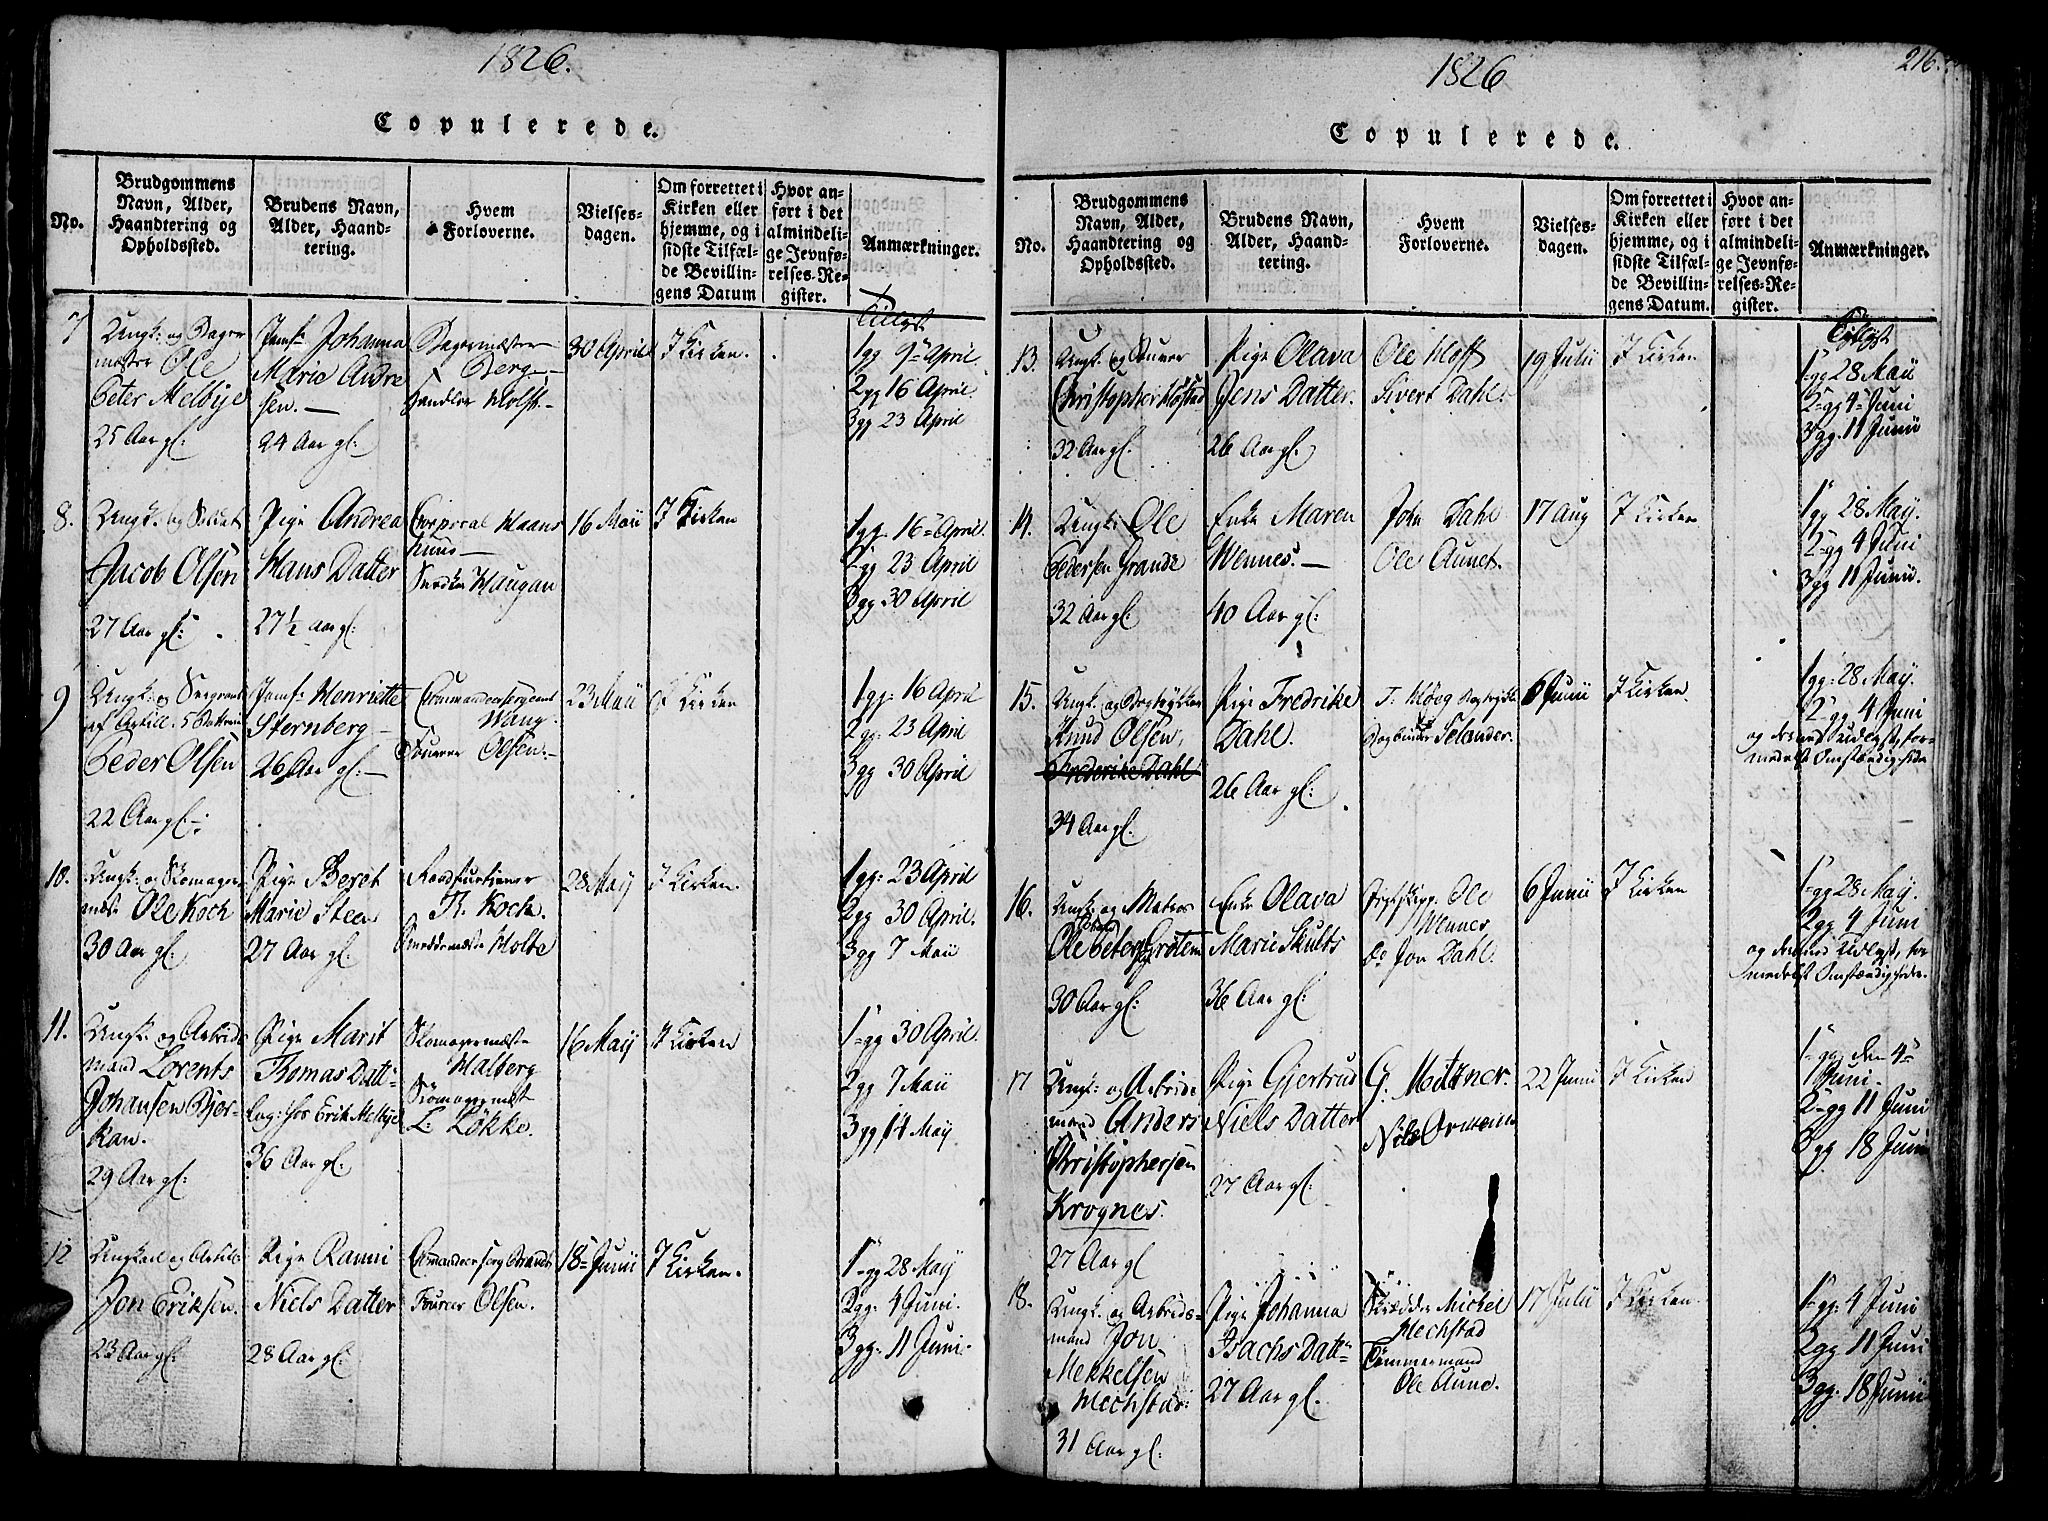 1826.
Copulerede.
No.
Brudgommens
Navn, Alder,
Haandtering og
Opholdssted.
Brudens Navn,
Alder, Haand-
tering.
Hvem
Forloverne.
Vielses-
dagen.
Om forrettet i
Kirken eller
hjemme, og i
sidste Tilfæl-
de Bevillin-
gens Datum
Hvor an-
ført i det
almindeli-
ge Jevnfø-
relses-Re-
gister.
Anmærkninger.
7
Ungk: og Bager
mester Ole
Peter Melbye
25 Aar gl.
Jomf: Johanna
Marie Andre
sen. —
24 Aar gl:
Bagermester
Berg
Handler Wolff
30 April
I Kirken.
Tillyst
1gg 9de April
2gg 16 April.
3gg 23 April
8.
Ungk. og Soldat
Jacob Olsen
27 Aar gl:
Pige Andrea
Hans Datter
27½ aar gl:
Corporal Haans
Snedker Haugan
16 Maii
I Kirken
1gg. 16 April.
2gg 23 April
3gg 30 April
9
Ungk: og Sergeant
af Artill. 5 Batterie
Peder Olsen
22 Aar gl:
Jomf: Henriette
Sternberg
26 Aar gl:
Commandeersergeant
Wang
Fourer Olsen.
23 Maii
I Kirken
1gg: 16 April
2gg: 23 April
3gg 30 April
10.
Ungk: og Skomager
mest. Ole Koch
30 Aar gl:
Pige Beret
Marie Steen
27 Aar gl:
R. Koch.
Smeddemester Holte
28 May
I Kirken.
1gg: 23 April
2gg 30 April.
3gg 7 Maii
11.
Ungk. og Arbeids
mand Lorents
Johansen Bjer-
kan.
29 Aar gl:
Pige Marit
Thomas Datt:
Log: hos Erik Melbye
36 Aar gl:
Skomagermester
Walberg
Skomagermest
L. Løkke.
16 May
I Kirken
1 gg 30 April.
2gg 7 Maii
3gg 14 May.
12
Ungkarl og
Jon Eriksen.
23 Aar gl.
Pige Ranni
Niels Datter
28 Aar gl:
Commandeerserg Brandt
Fourer Olsen.
18 Junii
I Kirken.
1 gg 28 May
2gg: 4 Juni.
3gg: 11 Juni.
1826
216.
Copulerede.
No.
Brudgommens
Navn, Alder,
Haandtering og
Opholdssted.
Brudens Navn,
Alder, Haand-
tering.
Hvem
Forloverne.
Vielses-
dagen.
Om forrettet i
Kirken eller
hjemme, og i
sidste Tilfæl-
de Bevillin-
gens Datum.
Hvor an-
ført i det
almindeli-
ge Jevnfø-
relses-Re-
gister.
Anmærkninger.
13.
Ungk. og
Christopher
32 Aar gl.
Pige Olava
Jens Datter.
26 Aar gl.
Ole Hoff
Sivert Dahl.
19 Julii
I Kirken
Tillyst
1 gg 28 Maii
2 gg 4 Juni
3 gg. 11 Junii
14.
Ungk: Ole
Pedersen Grande
32 Aar gl.
Enke Maren
Wennes. —
40 Aar gl:
John Dahl
Ole Aunet.
17 aug
I Kirken
1 gg 28 May.
2 gg 4 Juni
3gg 11 Junii.
15.
Ungk. og Bogtrykker
Knud Olsen,
Frederike Dahl
34 Aar gl.
Pige Fredrike
Dahl.
26 Aar gl:
T. Høeg Bogtrykker
Bogbinder Selander.
6 Junii
I Kirken.
1gg: 28 May.
2 gg: 4 Juni
og dermed udlyst, for-
medelst Omstændigheder
16.
Ungk og Matros
Ole Peter Grøtem
30 Aar gl:
Enke Olava
Marie Skults
36 Aar gl:
Ole
Wennes
Do Jon Dahl.
6 Junii
I Kirken
1 gg 28 May.
2gg 4 Juni
og dermed Udlyst, for
medelst Omstændigheder.
17
Ungk: og Arbeids
mand Anders
Christophersen
Krognes.
27 Aar gl
Pige Gjertrud
Niels Datter
27 Aar gl.
G. Mitzner.
Nils Ormann
22 Juni
I Kirken
1 gg den 4de
Juni.
2 gg 11 Juni
3 gg 18 Juni
18.
Ungk. og Arbeids-
mand Jon
Mekkelsen
Mechstad.
31 Aar gl:
Pige Johanna
Isachs Datt:
27 Aar gl:
Skrædder Michel
Mechstad
Tømmermand
Ole Aune.
17 Julii
I Kirken.
1 gg: 4 Juni
2gg 11 Juni
3gg: 18 Junii